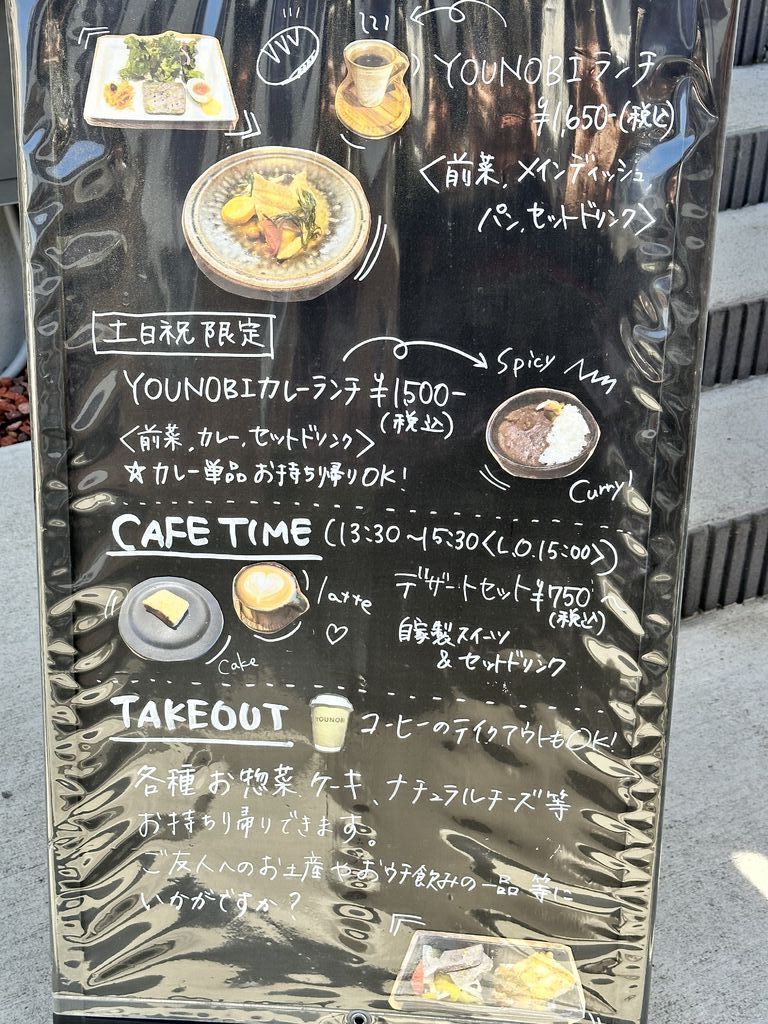 YOUNOBI ランチ
¥1,650-(税込)
<前菜、メインディッシュ、
パン、セットドリンク>
土日祝限定
Spicy
YOUNOBIカレーランチ ¥1500-
(税込)
<前菜、カレー、セットドリンク>
☆カレー単品お持ち帰りOK!
Curry!
CAFE TIME (13:30~15:30<L.O.15:00>)
latte
デザートセット¥750~
(税込)
自家製スイーツ
&セットドリンク
Cake
TAKEOUT
YOUNOBI
コーヒーのテイクアウトもOK!
各種お惣菜、ケーキ、ナチュラルチーズ等
お持ち帰りできます。
ご友人へのお土産やおウチ飲みの一品等に
いかがですか?